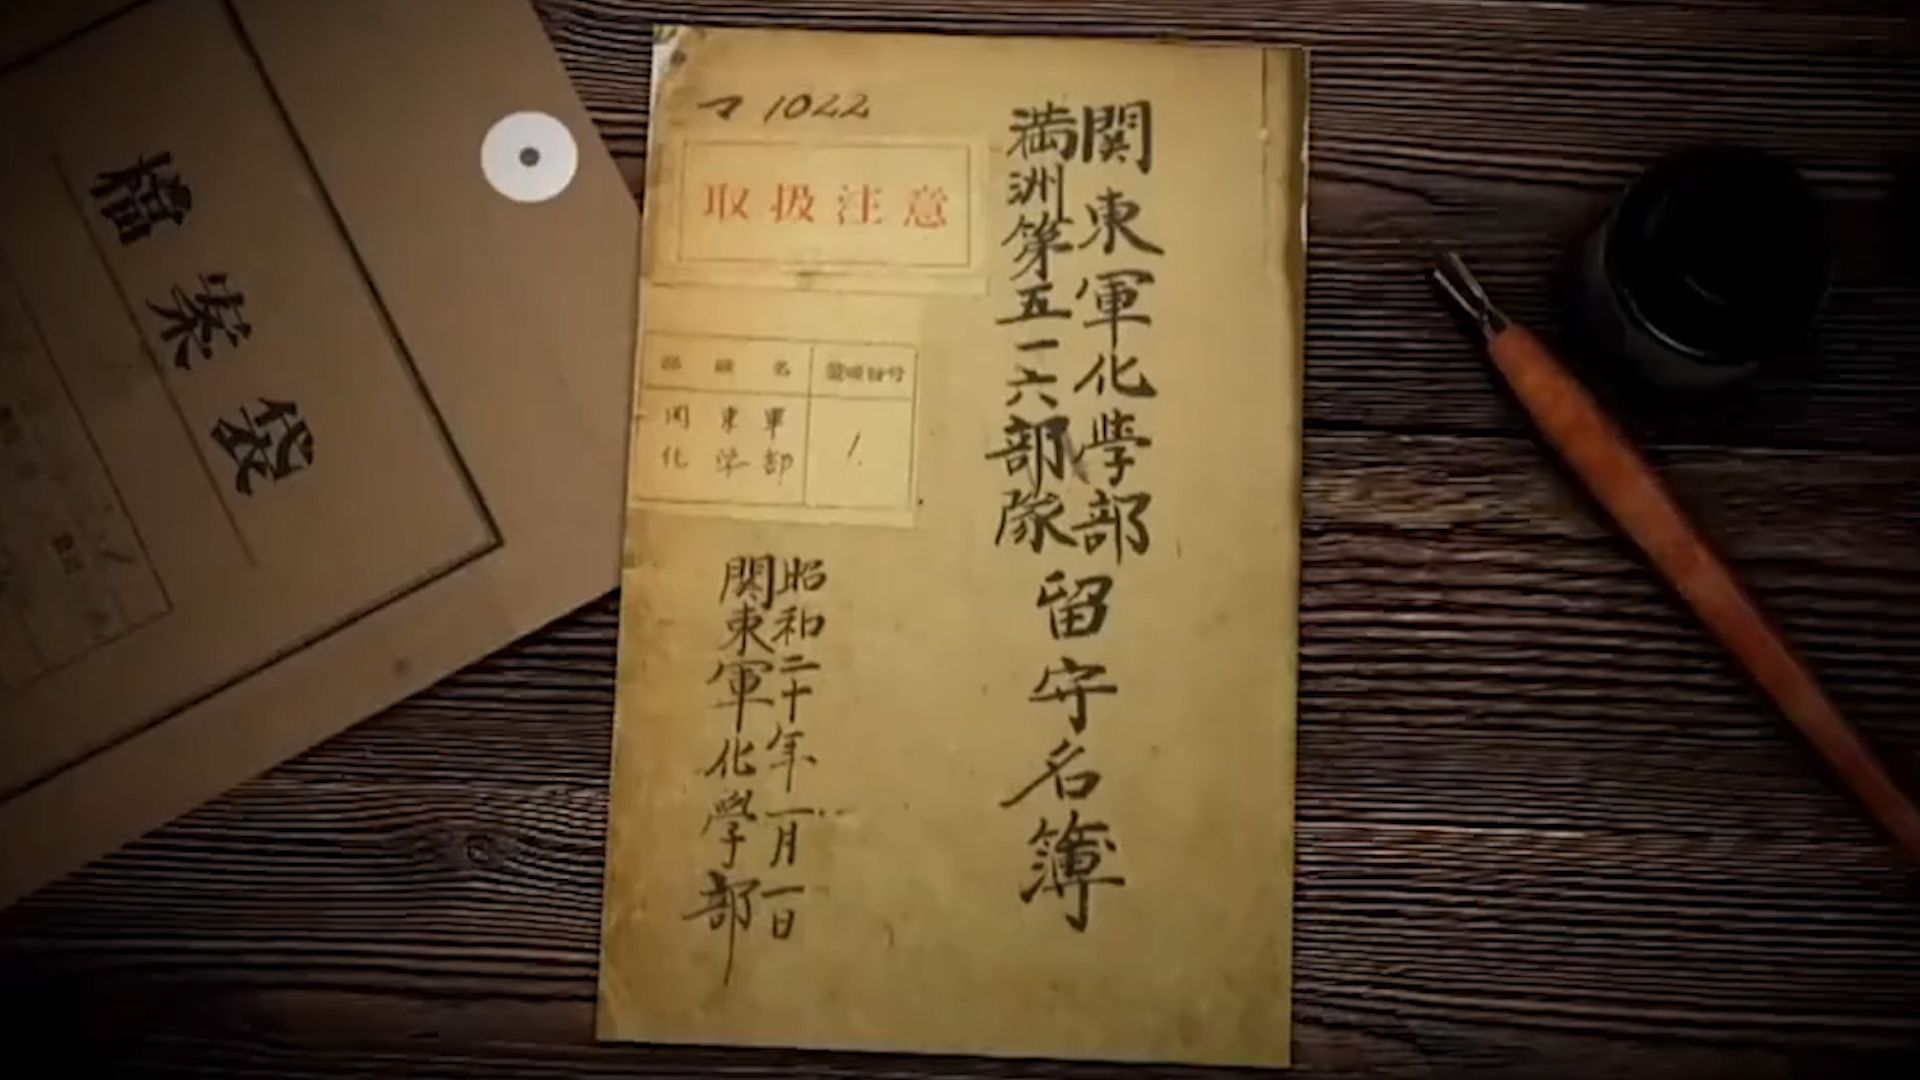 檔案袋
マ 1022
取扱注意
関東軍化学部
満洲第五一六部隊
留守名簿
部隊名
関東軍
化学部
1.
昭和二十年一月一日
関東軍化學部